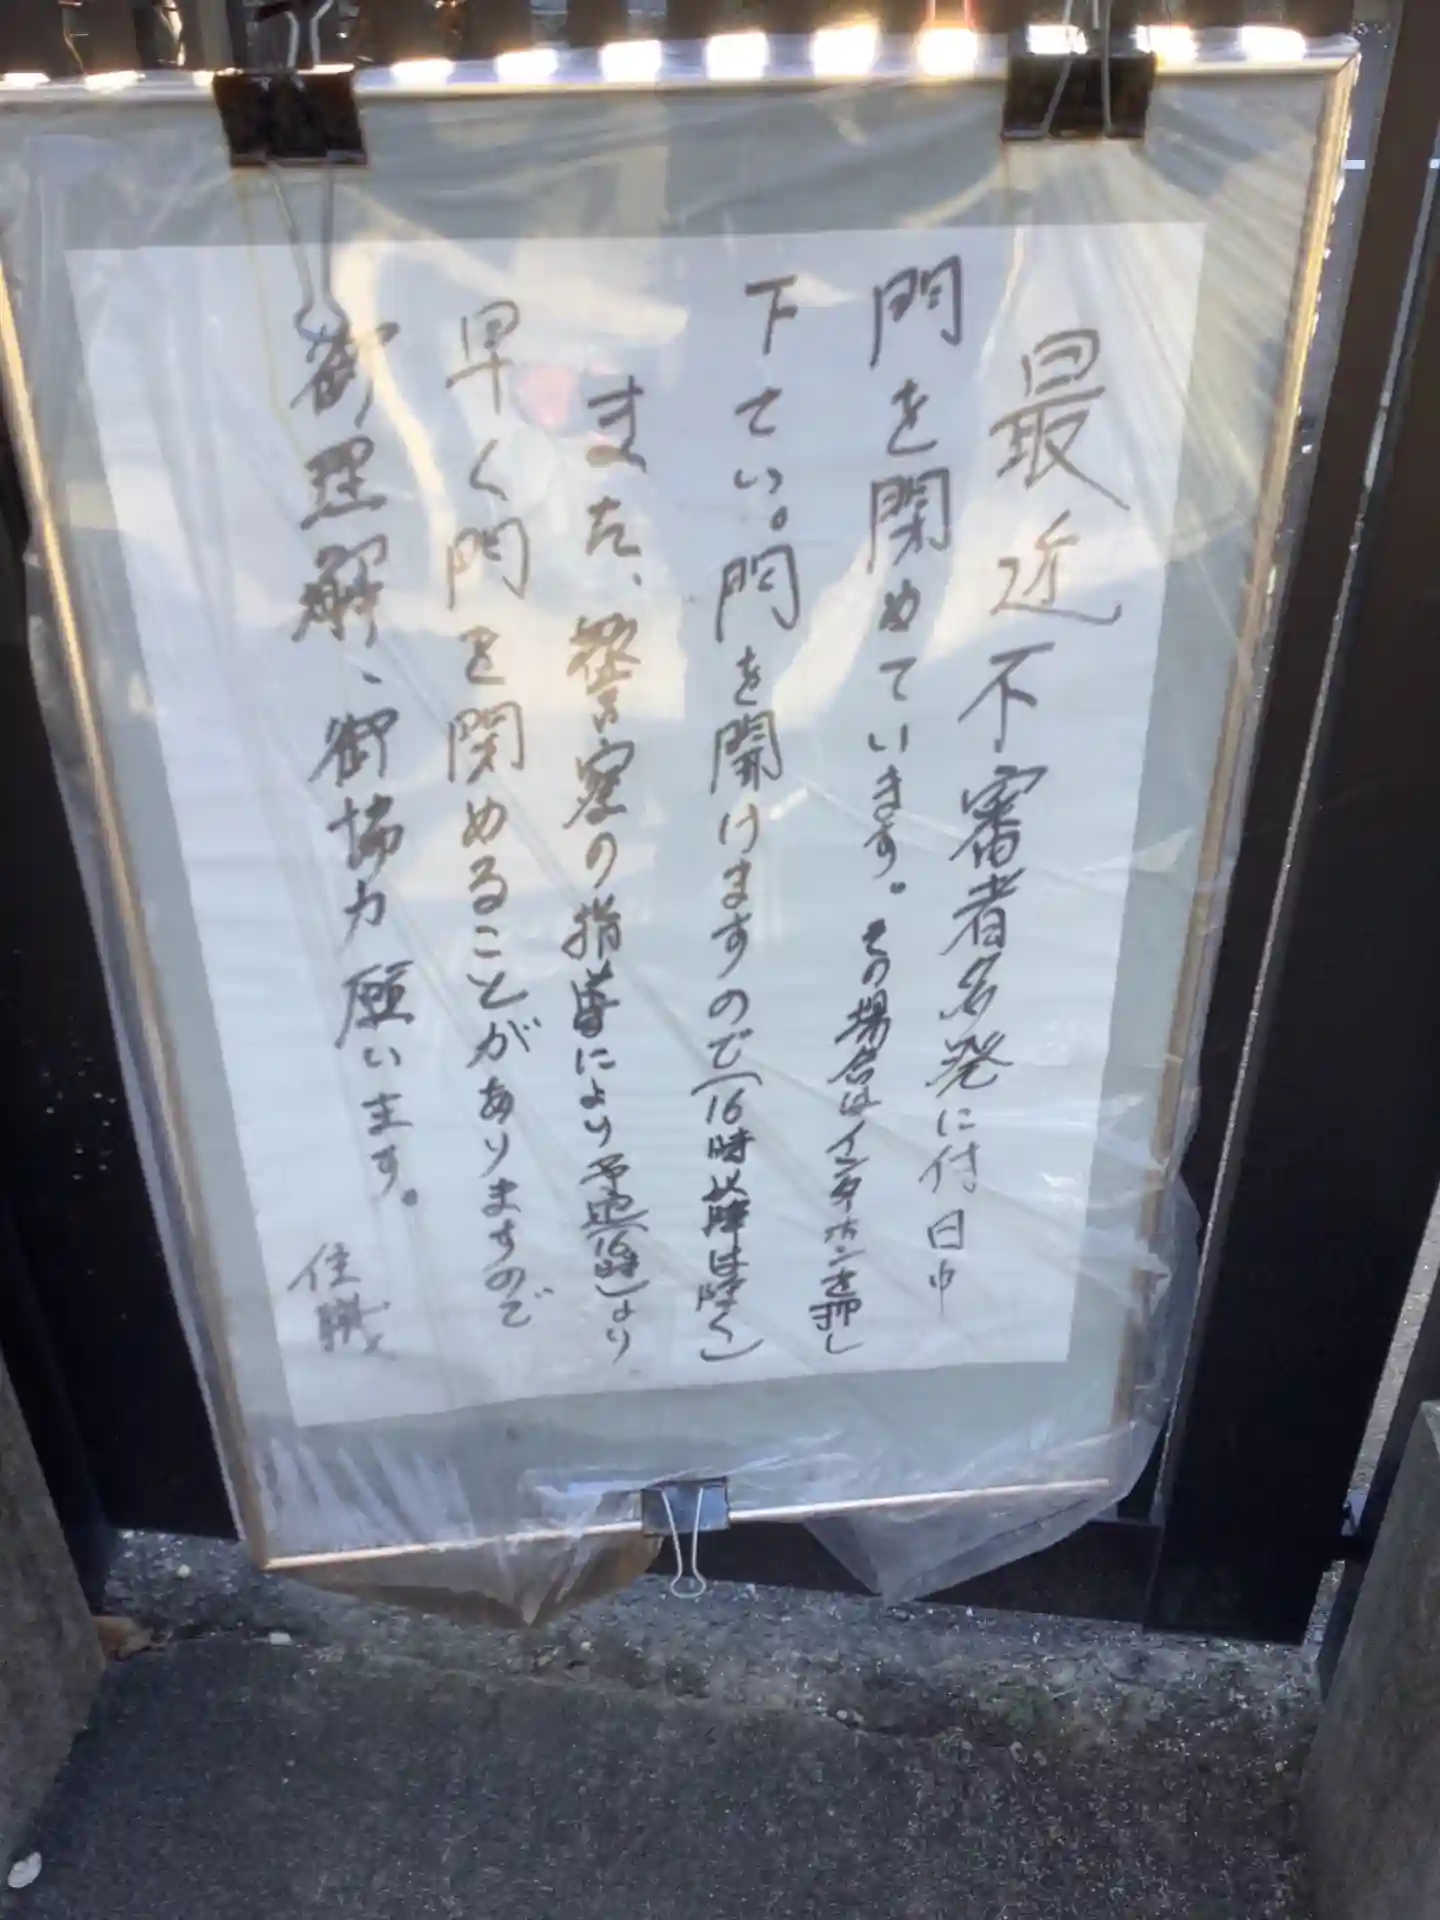 最近不審者多発に付日中
門を閉めています。その場合はインターホンを押し
下てい。門を開けますので(16時以降は除く)
また、警察の指導により予定(16時)より
早く門を閉めることがありますので
御理解、御協力願います。
住職